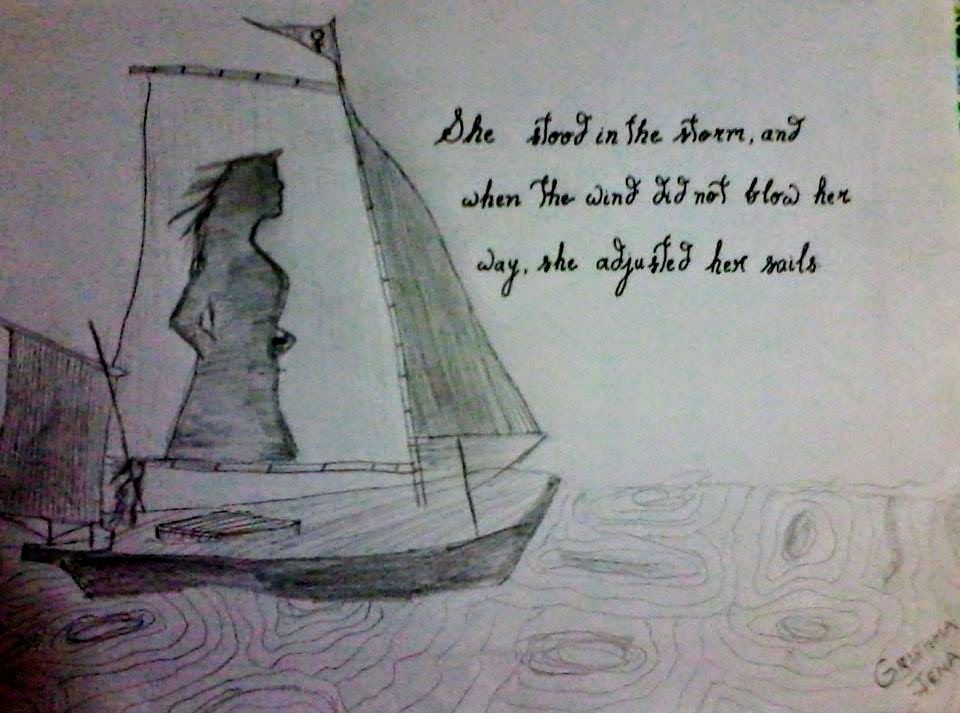 She stood in the storm, and
when the wind did not blow her
way, she adjusted her sails
JENA